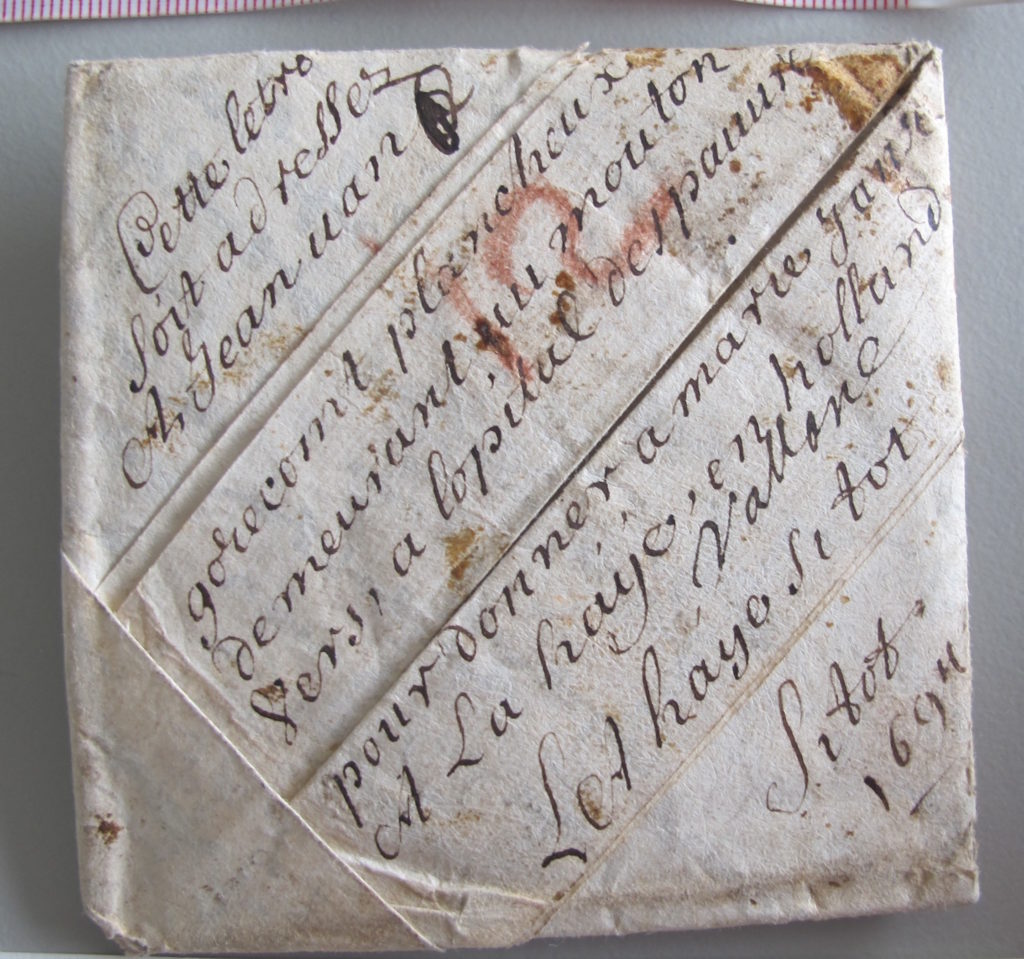 Cette letre
Soit adresser
A Jean uan
gorecomt planchoux
demeurant, au mouton
Vers, a lopital des pauure
pour donner a marie Jans
A La haye, en holland
Vallone
LA haye si tot
Si tot.
1694